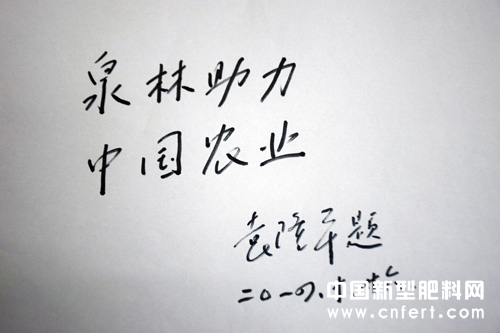 泉林助力
中国农业
袁隆平题
二〇一四.
中国新型肥料网
www.cnfert.com